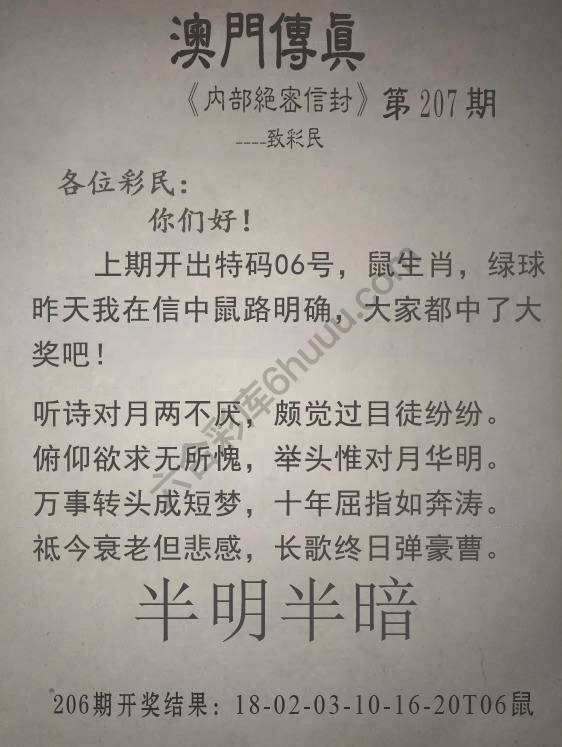 澳門傳眞
《内部絕密信封》第207期
----致彩民
各位彩民：
你们好！
上期开出特码06号，鼠生肖，绿球
昨天我在信中鼠路明确，大家都中了大
奖吧！
听诗对月两不厌，颇觉过目徒纷纷。
俯仰欲求无所愧，举头惟对月华明。
万事转头成短梦，十年屈指如奔涛。
祗今衰老但悲感，长歌终日弹豪曹。
半明半暗
206期开奖结果：18-02-03-10-16-20T06鼠
六合彩库6huuu.com